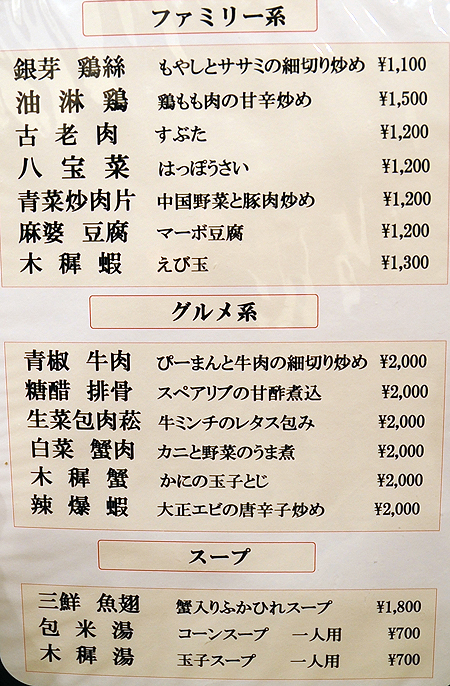 ファミリー系
銀芽 鶏絲 もやしとササミの細切り炒め ¥1,100
油淋鶏 鶏もも肉の甘辛炒め ¥1,500
古老肉 すぶた ¥1,200
八宝菜 はっぽうさい ¥1,200
青菜炒肉片 中国野菜と豚肉炒め ¥1,200
麻婆 豆腐 マーボ豆腐 ¥1,200
木樨蝦 えび玉 ¥1,300
グルメ系
青椒 牛肉 ぴーまんと牛肉の細切り炒め ¥2,000
糖醋 排骨 スペアリブの甘酢煮込 ¥2,000
生菜包肉菘 牛ミンチのレタス包み ¥2,000
白菜 蟹肉 カニと野菜のうま煮 ¥2,000
木樨蟹 かにの玉子とじ ¥2,000
辣爆蝦 大正エビの唐辛子炒め ¥2,000
スープ
三鮮 魚翅 蟹入りふかひれスープ ¥1,800
包米湯 コーンスープ 一人用 ¥700
木樨湯 玉子スープ 一人用 ¥700